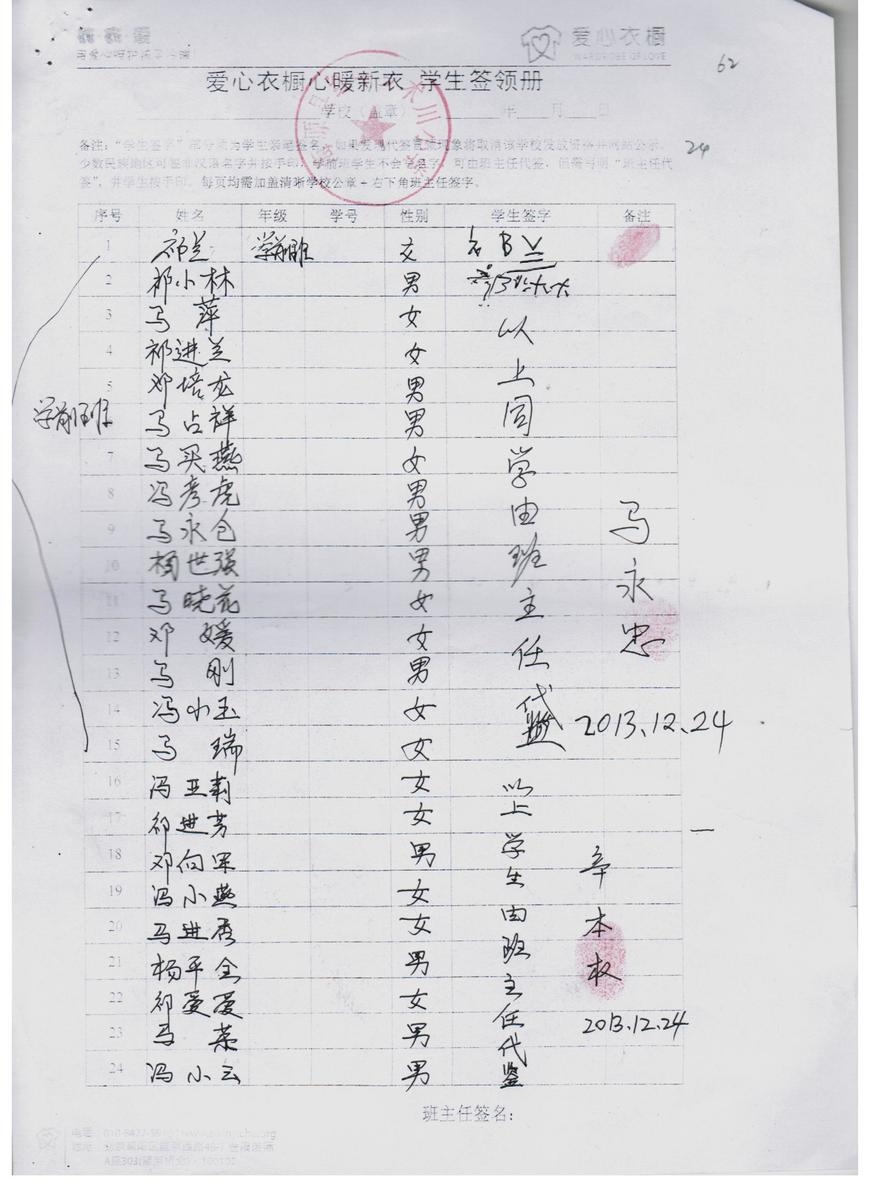 爱心衣橱
WARDROBE OF LOVE
62
爱心衣橱心暖新衣 学生签领册
学校（盖章） 年 月 日
24
备注：“学生签名”部分须为学生亲笔签名，如果发现代签冒领现象将取消该学校发放资格并网站公示。
少数民族地区可签非汉语名字并按手印，学前班学生不会写名字，可由班主任代签，但需写明“班主任代
签”，并学生按手印。每页均需加盖清晰学校公章＋右下角班主任签字。
序号 姓名 年级 学号 性别 学生签字 备注
1 祁兰 学前班 女
2 祁小林 男
3 马萍 女
4 祁进兰 女
5 邓培龙 男
学前班
马占祥 男
7 马买燕 女
8 冯孝虎 男
9 马永仓 男
10 杨世强 男
11 马晓花 女
12 邓媛 女
13 马刚 男
14 冯小玉 女
15 马瑞 女
以上同学由班主任代签
马永忠
2013.12.24
16 冯亚莉 女
17 祁进芳 女
18 邓向军 男
19 冯小燕 女
20 马进秀 女
21 杨平全 男
22 祁爱爱 女
23 马荣 男
24 冯小云 男
以上学生由班主任代鉴
辛本权
2013.12.24
班主任签名：